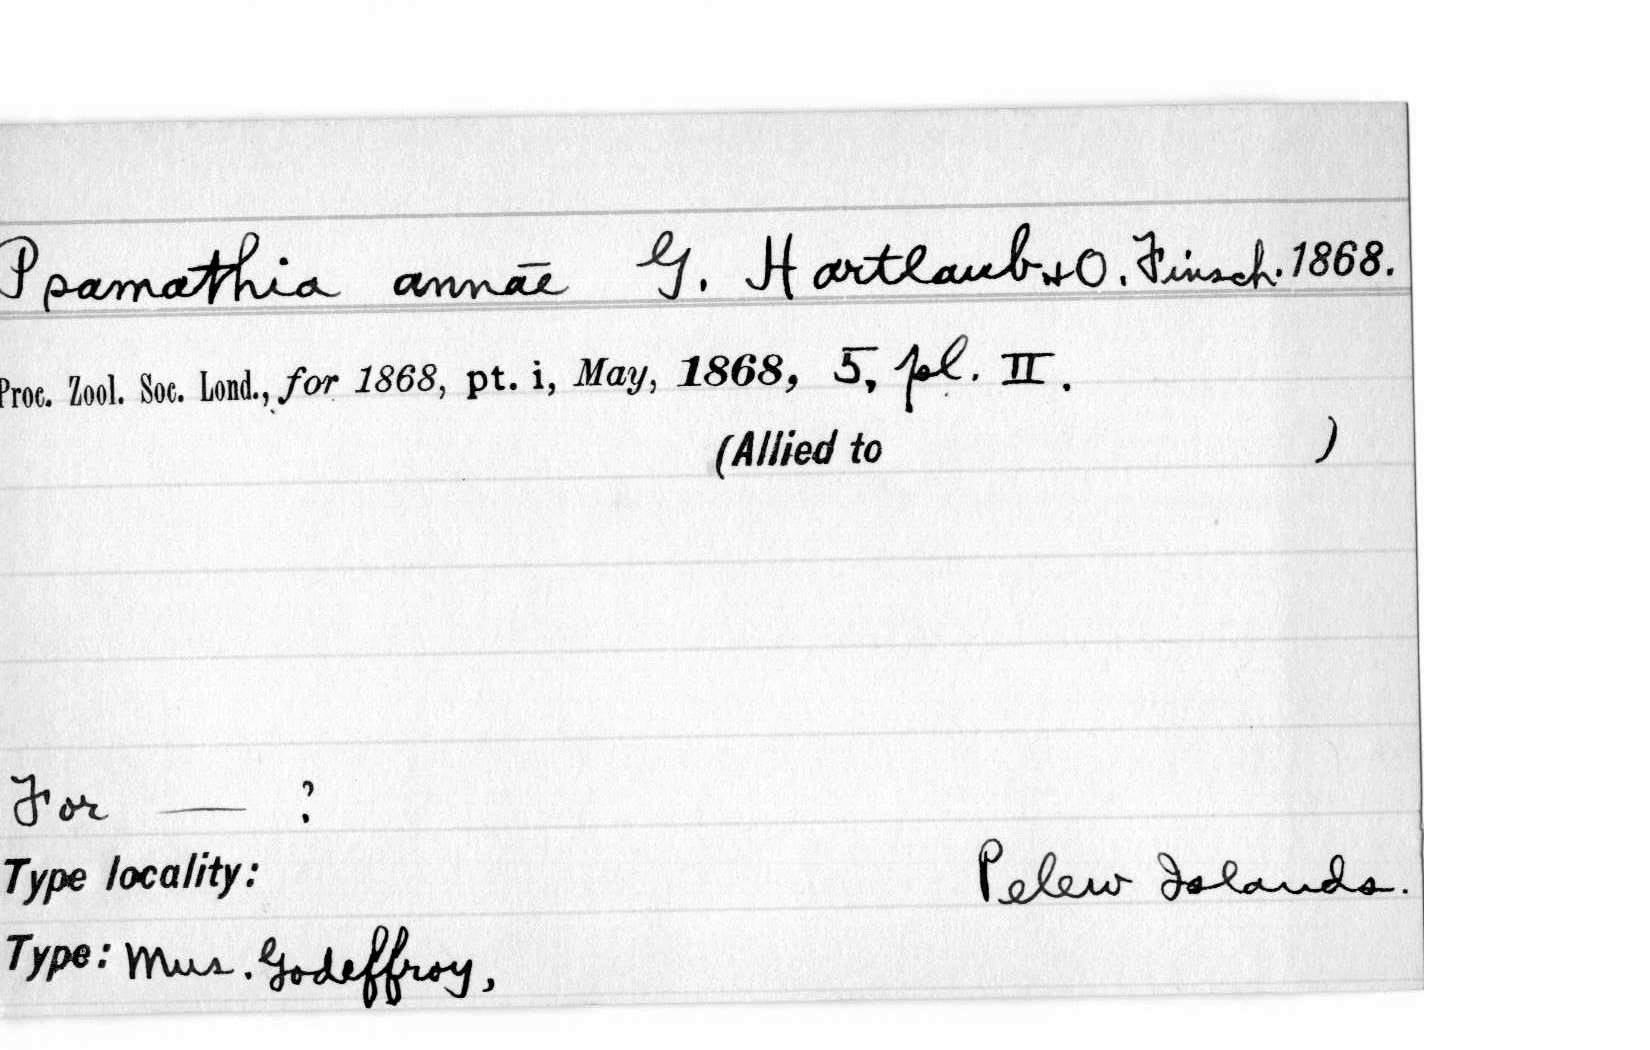 Psamathia annāe G. Hartlaub + O. Finsch. 1868.
Proc. Zool. Soc. Lond., for 1868, pt. i, May, 1868, 5, pl. II.
(Allied to )
For — ?
Type locality: Pelew Islands.
Type: Mus. Godeffroy,